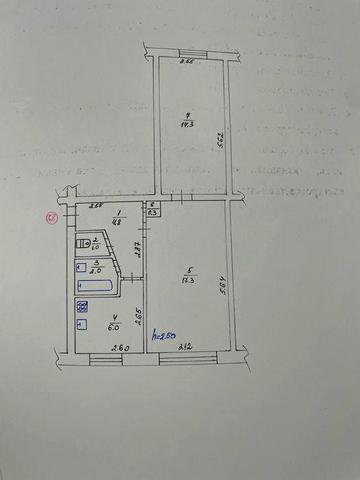 2.55
7
14.3
5.62
68
2.55
1
4.8
6
0.3
2
1.0
2.87
3
2.0
5
17.3
5.64
4
6.0
2.65
h=2.50
2.60
3.12